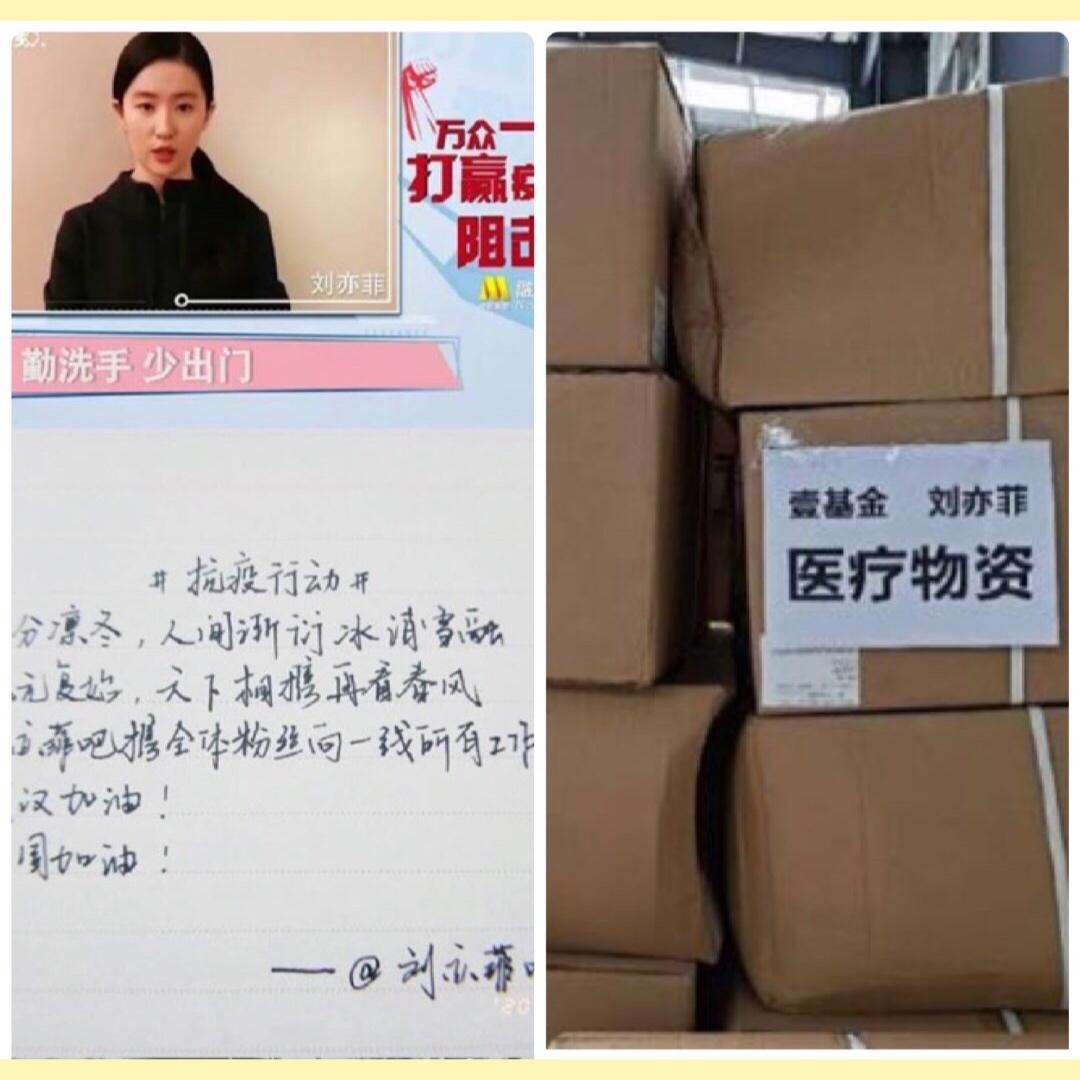 万众一
打赢疫
阻击
刘亦菲
勤洗手 少出门
#抗疫行动#
分凛冬，人间渐行冰消雪融
元复始，天下相携再看春风
亦菲吧携全体粉丝向一线所有工作
汉加油！
国加油！
——@刘亦菲吧
'20
壹基金 刘亦菲
医疗物资